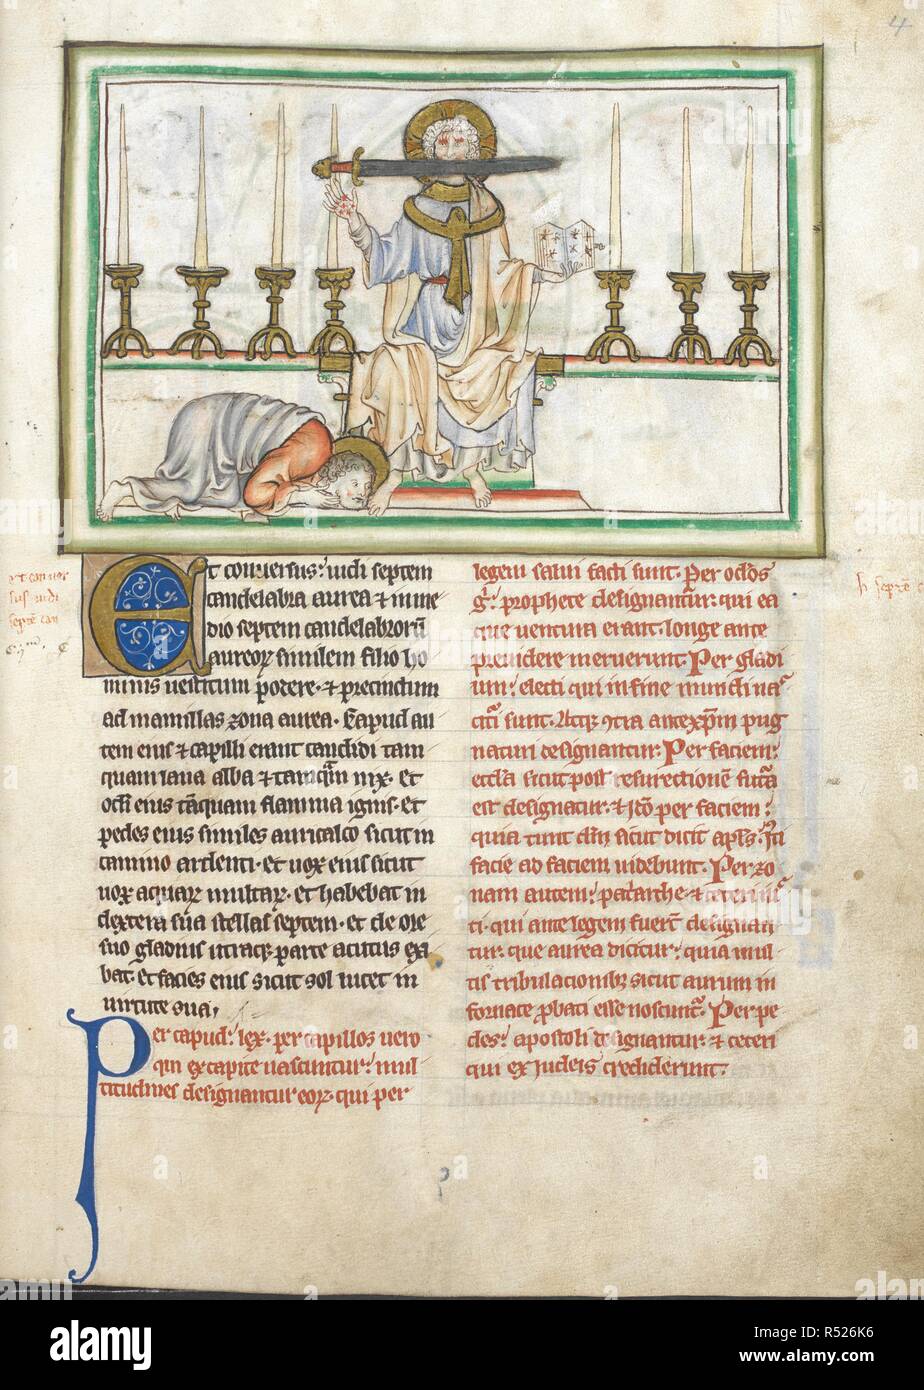 4
Et conuersus: uidi septem
candelabra aurea & in me
dio septem candelabroꝝ
aureoꝝ similem filio ho
minis uestitum podere · & precinctum
ad mamillas zona aurea. Capud au
tem eius & capilli erant candidi tam
quam lana alba & tamꝗ̃m nix · et
ocl̃i eius tãquam flamma ignis · et
pedes eius similes auricalco sicut in
camino ardenti · et uox eius sicut
uox aquaꝝ multaꝝ · et habebat in
dextera sua stellas septem · et de ore
suo gladius utraq; parte acutus exi
bat · et facies eius sicut sol lucet in
uirtute sua,
Per capud: lex · per capillos uero
qui ex capite nascuntur: mul
titudines designantur eoꝝ · qui per
legem salui facti sunt. Per ocl̃os
prophete designantur: qui ea
que uentura erant: longe ante
preuidere meruerunt. Per gladi
um: electi qui in fine mundi na
sunt. pug
naturi designantur. Per faciem:
eccl̃a sicut post resurectionem
est designatur: & per faciem:
quia tunt dñm sicut dicit
facie ad faciem uidebunt. Per zo
nam autem: & ceteri
ti · qui ante legem fuerũt designan
tur · que aurea dicitur: quia mul
tis tribulacionibꝫ sicut aurum in
fornace probati esse noscunt᷑. Per pe
des: apostoli designantur · & ceteri
qui ex judeis crediderunt.
et conuer
sus uidi
septẽ can
alamy
Image ID: R526K6
www.alamy.com